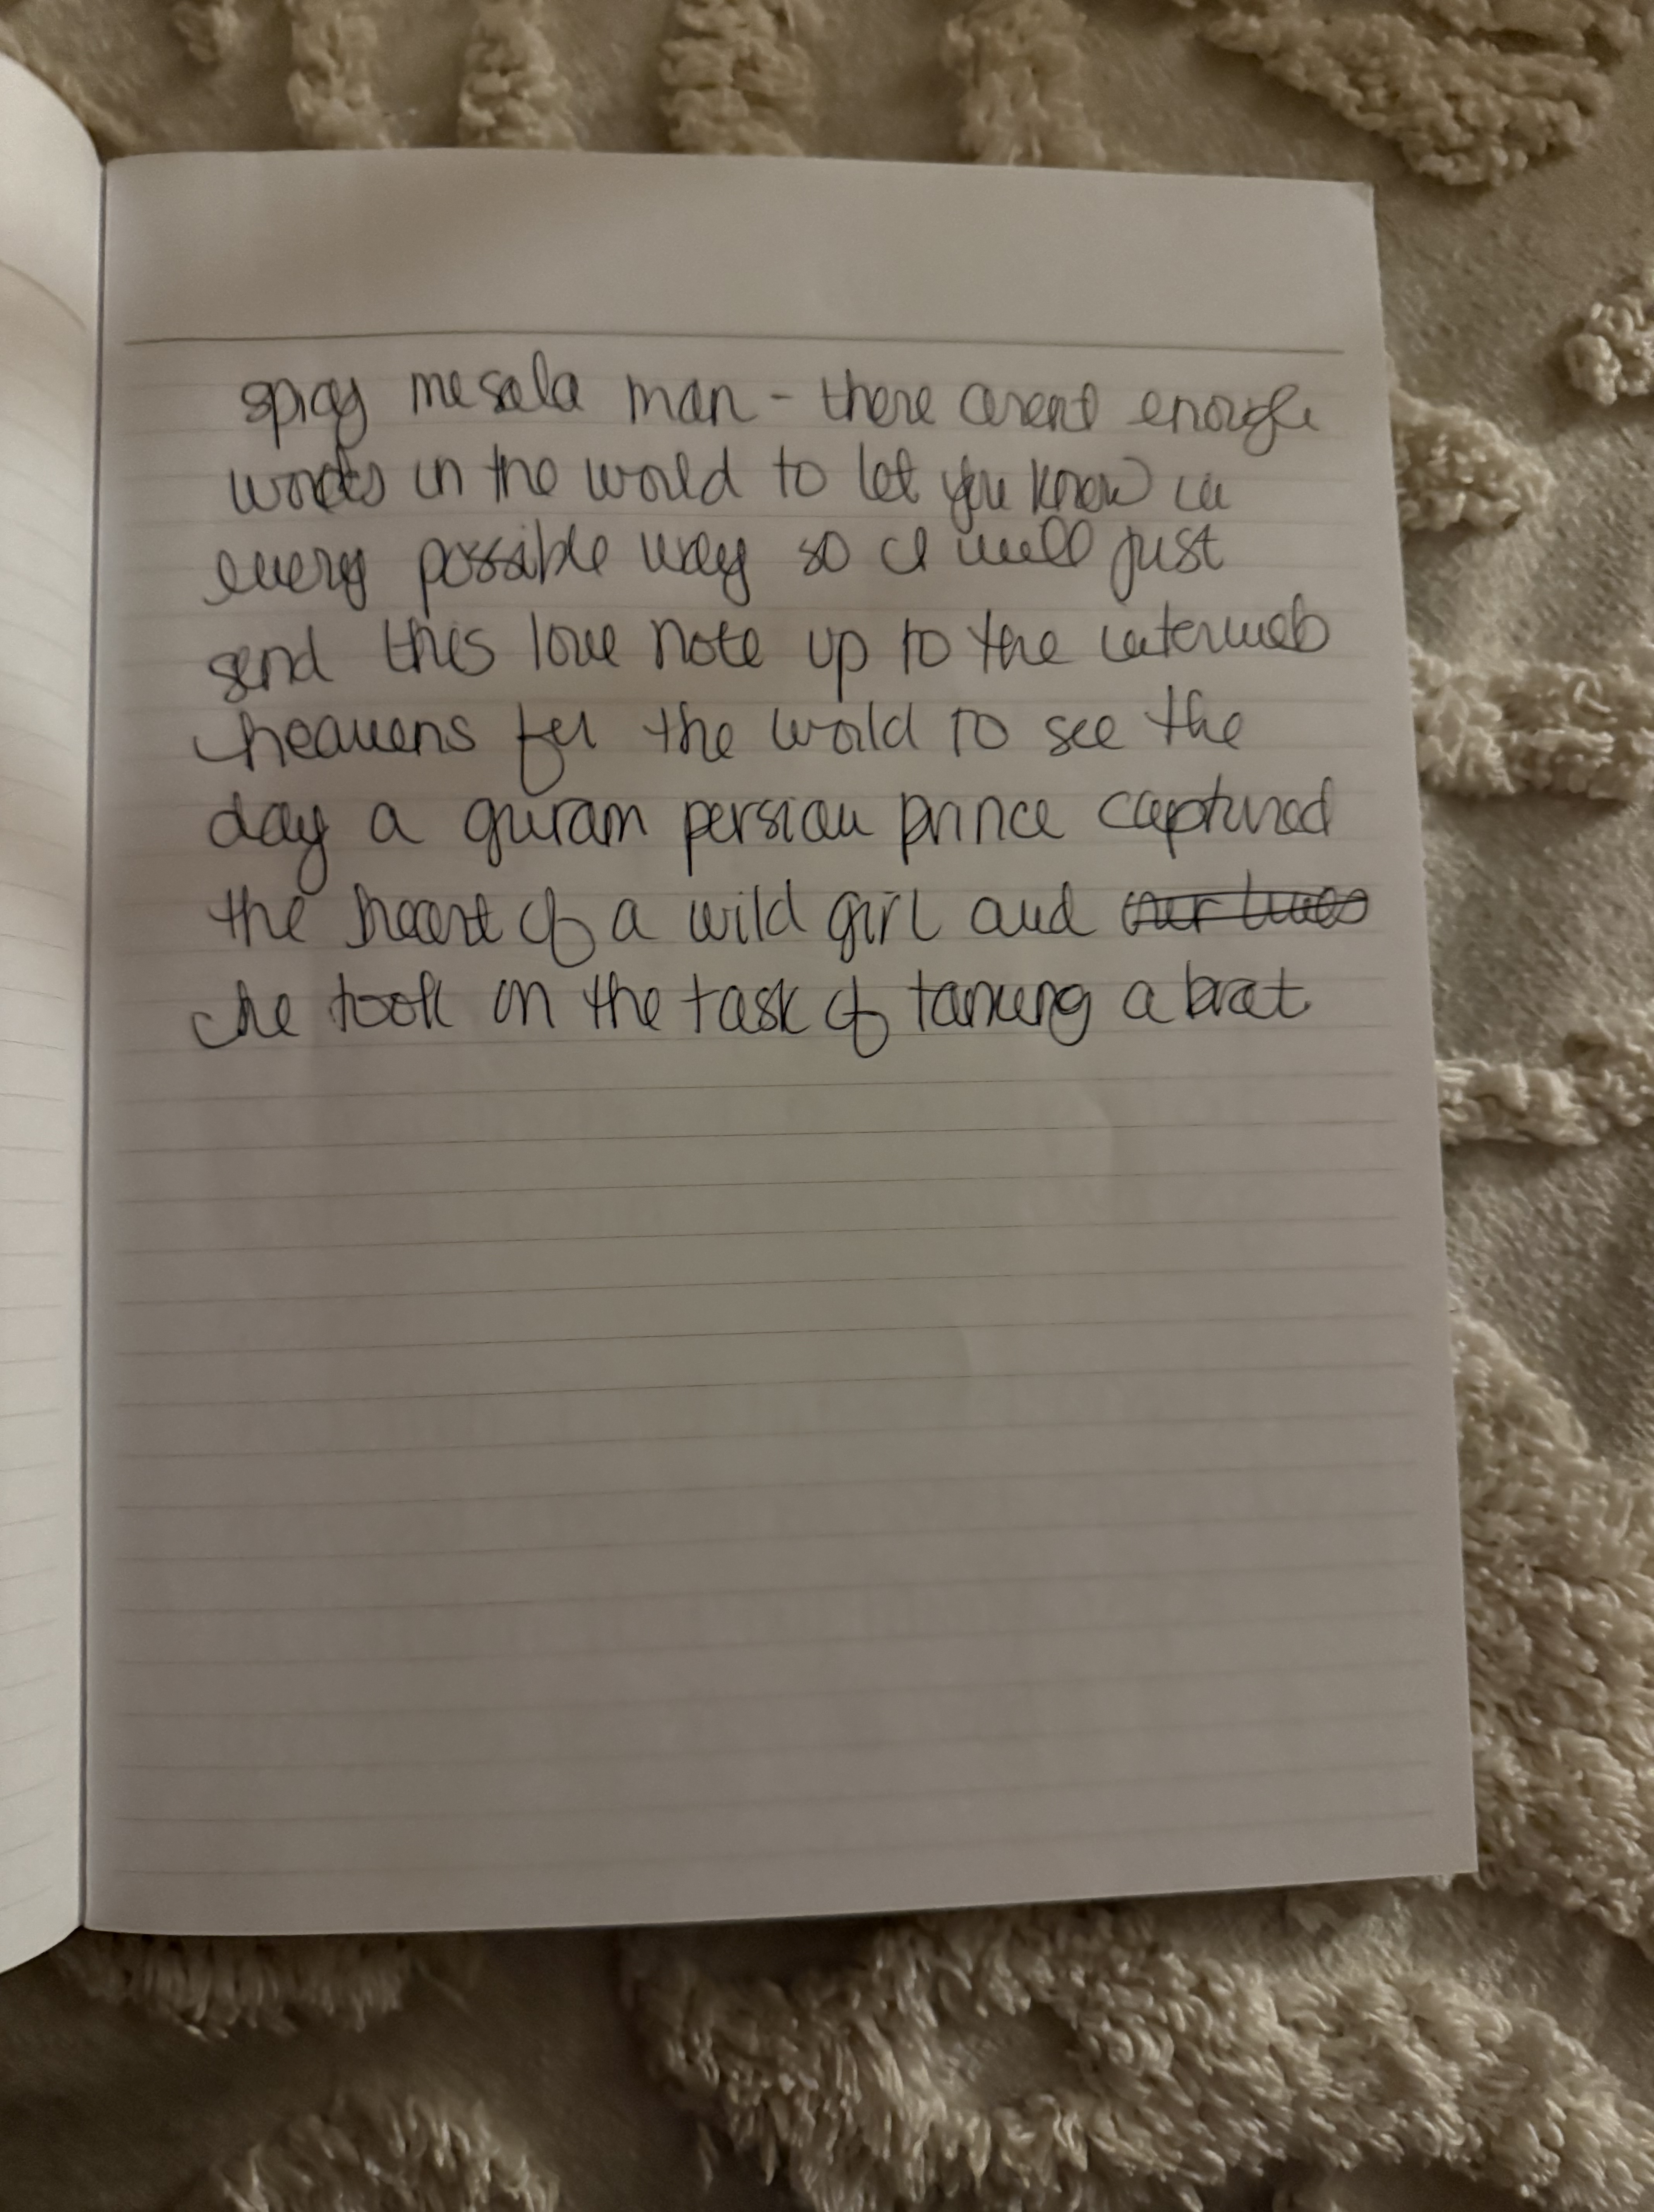 spicy mesala man - there arent enough
words in the world to let you know in
every possible way so I will just
send this love note up to the interweb
heavens for the world to see the
day a persian prince captured
the heart of a wild girl and
he took on the task of taming a brat